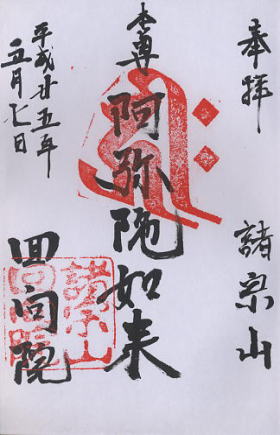 奉拝
諸宗山
本尊
阿弥陀如来
平成廿五年
五月七日
回向院